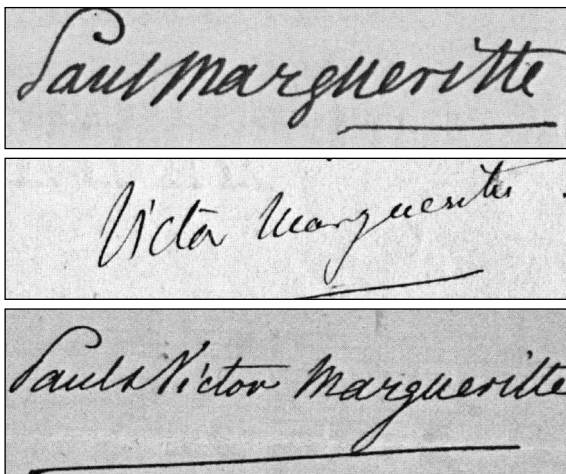 Paul Margueritte
Victor Margueritte
Paul & Victor Margueritte